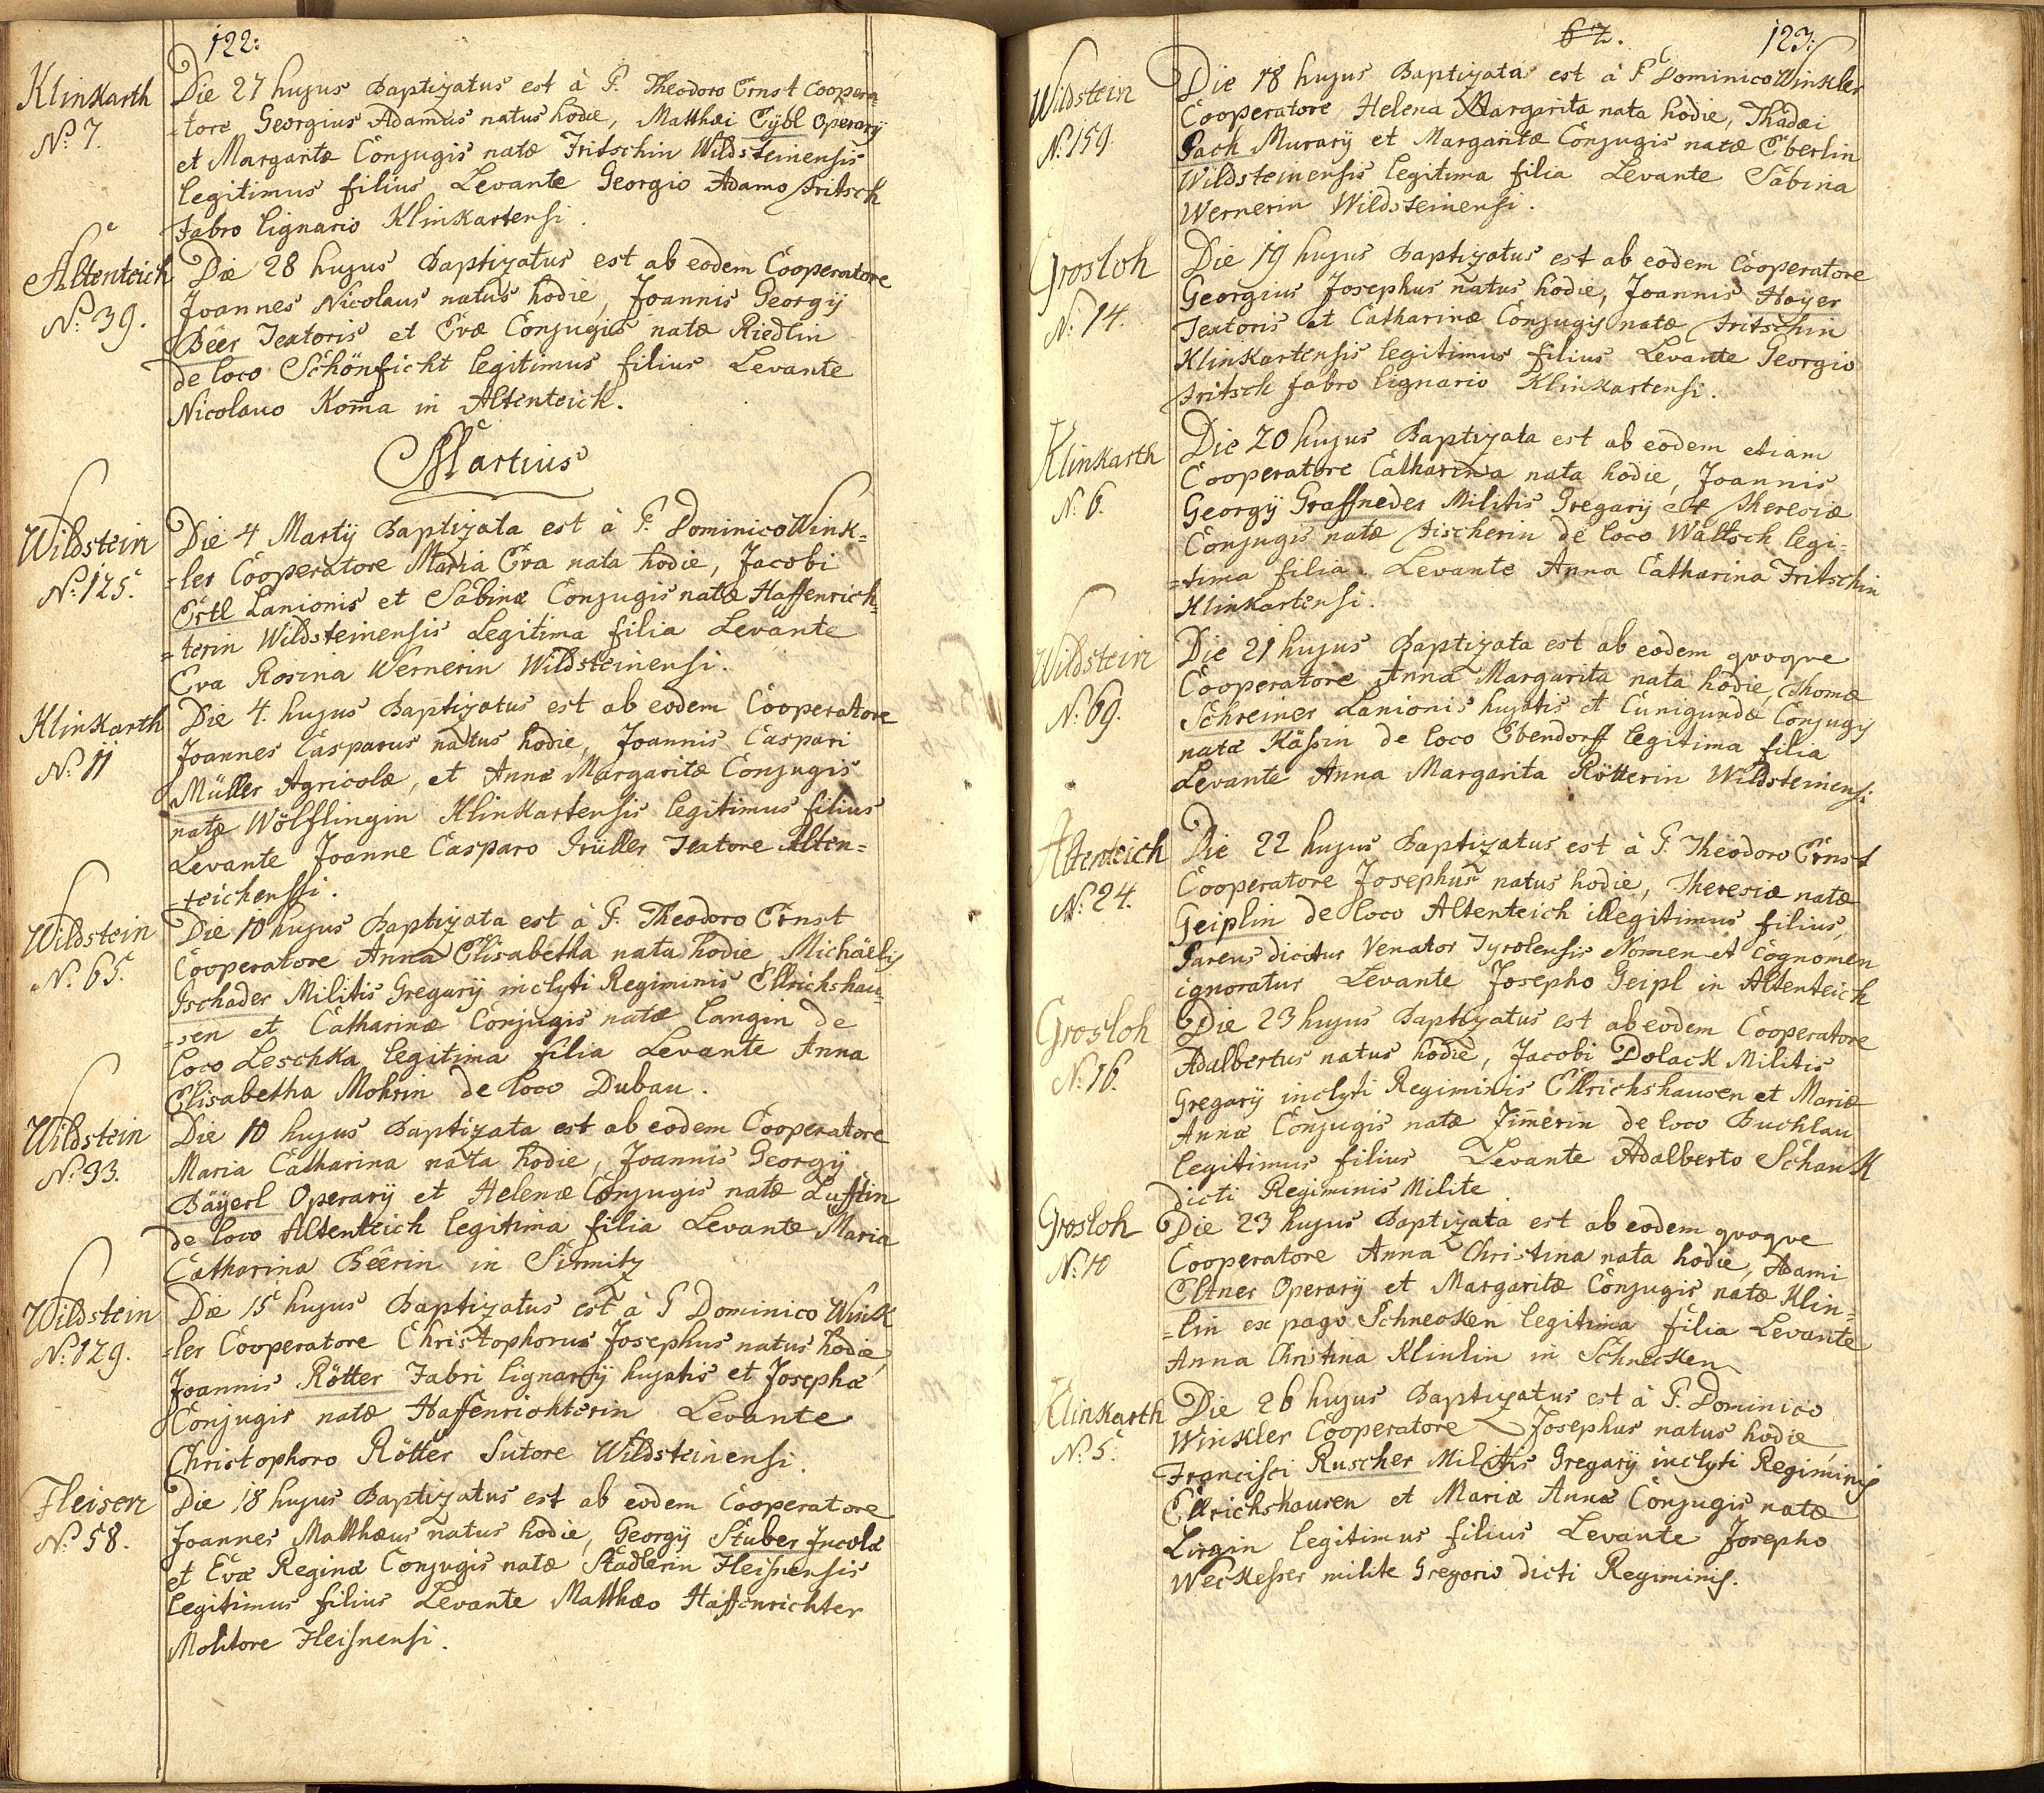 122:
Klinkarth
N: 7.
Die 27 hujus Baptizatus est à P. Theodoro Ernst Coopera-
=tore Georgius Adamus natus hodie, Matthæi Eÿbl Operarÿ
et Margaritæ Conjugis natæ Fritschin Wildsteinensis
legitimus filius Levante Georgio Adamo Fritsch
Fabro lignario Klinkartensi.
Altenteich
N: 39.
Die 28 hujus Baptizatus est ab eodem Cooperatore
Joannes Nicolaus natus hodie, Joannis Georgÿ
Beer Textoris et Evæ Conjugis natæ Riedlin
de loco Schönficht legitimus filius Levante
Nicolauo Kom̄a in Altenteich.
Martius
Wildstein
N: 125.
Die 4 Martÿ Baptizata est à P. Dominico Wink=
=ler Cooperatore Maria Eva nata hodie, Jacobi
Ertl Lanionis et Sabinæ Conjugis natæ Haffenrich=
=terin Wildsteinensis Legitima filia Levante
Eva Rosina Wernerin Wildsteinensi.
Klinkarth
N: 11
Die 4. hujus Baptizatus est ab eodem Cooperatore
Joannes Casparus natus hodie, Joannis Caspari
Müller Agricolæ, et Annæ Margaritæ Conjugis
natæ Wölflingin Klinkartensis legitimus filius
Levante Joanne Casparo Früller Textore Alten=
=teichenssi.
Wildstein
N: 65.
Die 10 hujus Baptizata est à P. Theodoro Ernst
Cooperatore Anna Elisabetha nata hodie, Michäelis
Pschader Militis Gregarÿ inclyti Regiminis Ellrichshau=
=sen et Catharinæ Conjugis natæ Langin de
loco Leschka legitima filia Levante Anna
Elisabetha Mohrin de loco Dubau.
Wildstein
N: 93.
Die 10 hujus Baptizata est ab eodem Cooperatore
Maria Catharina nata hodie, Joannis Georgÿ
Bäÿerl Operarÿ et Helenæ Conjugis natæ Lufftin
de loco Altenteich legitima filia Levante Maria
Catharina Beerin in Sirmitz
Wildstein
N: 129.
Die 15 hujus Baptizatus est à P Dominico Wink
=ler Cooperatore Christophorus Josephus natus hodie,
Joannis Rötter Fabri lignarÿ hujatis et Josephæ
Conjugis natæ Haffenrichterin Levante
Christophoro Rötter Sutore Wildsteinensi.
Fleisen
N: 58.
Die 18 hujus Baptizatus est ab eodem Cooperatore
Joannes Matthæus natus hodie, Georgÿ Stuber Incolæ
et Evæ Reginæ Conjugis natæ Stadlerin Fleisnensis
legitimus filius Levante Matthæo Haffenrichter
Molitore Fleisnensi.
62. 123:
Wildstein
N: 159.
Die 18 hujus Baptizata est à P Dominico Winkler
Cooperatore Helena Margarita nata hodie, Thadæi
Pach Murarÿ et Margaritæ Conjugis natæ Eberlin
Wildsteinensis legitima filia Levante Sabina
Wernerin Wildsteinensi.
Grosloh
N: 14.
Die 19 hujus Baptizatus est ab eodem Cooperatore
Georgius Josephus natus hodie, Joannis Hoÿer
Textoris et Catharinæ Conjugis natæ Fritschin
Klinkartensis legitimus filius Levante Georgio
Fritsch fabro lignario Klinkartensi.
Klinkarth
N: 6.
Die 20 hujus Baptizata est ab eodem etiam
Cooperatore Catharina nata hodie, Joannis
Georgÿ Graffneder Militis Gregarÿ et Theresiæ
Conjugis natæ Fischerin de loco Waltsch legi=
=tima filia. Levante Anna Catharina Fritschin
Klinkartensi.
Wildstein
N: 69.
Die 21 hujus Baptizata est ab eodem quoque
Cooperatore Anna Margarita nata hodie, Thomæ
Schreiner Lanionis hujatis et Cunigundæ Conjugis
natæ Kässin de loco Ebendorff legitima filia
Levante Anna Margarita Rötterin Wildsteinensi
Altenteich
N: 24.
Die 22 hujus Baptizatus est à P. Theodoro Ernst
Cooperatore Josephus natus hodie, Theresiæ natæ
Geiplin de loco Altenteich illegitimus filius,
Parens dicitur Venator Tyrolensis Nomen et Cognomen
ignoratur Levante Josepho Geipl in Altenteich
Grosloh
N: 16.
Die 23 hujus Baptizatus est ab eodem Cooperatore
Adalbertus natus hodie, Jacobi Dolack Militis
Gregarÿ inclyti Regiminis Ellrichshausen et Mariæ
Annæ Conjugis natæ Zim̄erin de loco Buchlau
legitimus filius Levante Adalberto Schauk
dicti Regiminis Milite.
Grosloh
N: 10
Die 23 hujus Baptizata est ab eodem quoque
Cooperatore Anna Christina nata hodie, Adami
Eltner Operarÿ et Margaritæ Conjugis natæ Klin=
=lin ex pago Schnecken legitima filia Levante
Anna Christina Klinlin in Schnecken
Klinkarth
N: 5.
Die 26 hujus Baptizatus est à P. Dominico
Winkler Cooperatore Josephus natus hodie,
Francisci Ruscher Militis Gregarÿ inclyti Regiminis
Ellrichshausen et Mariæ Annæ Conjugis natæ
Lirgin legitimus filius Levante Josepho
Weckesser milite Gregario dicti Regiminis.